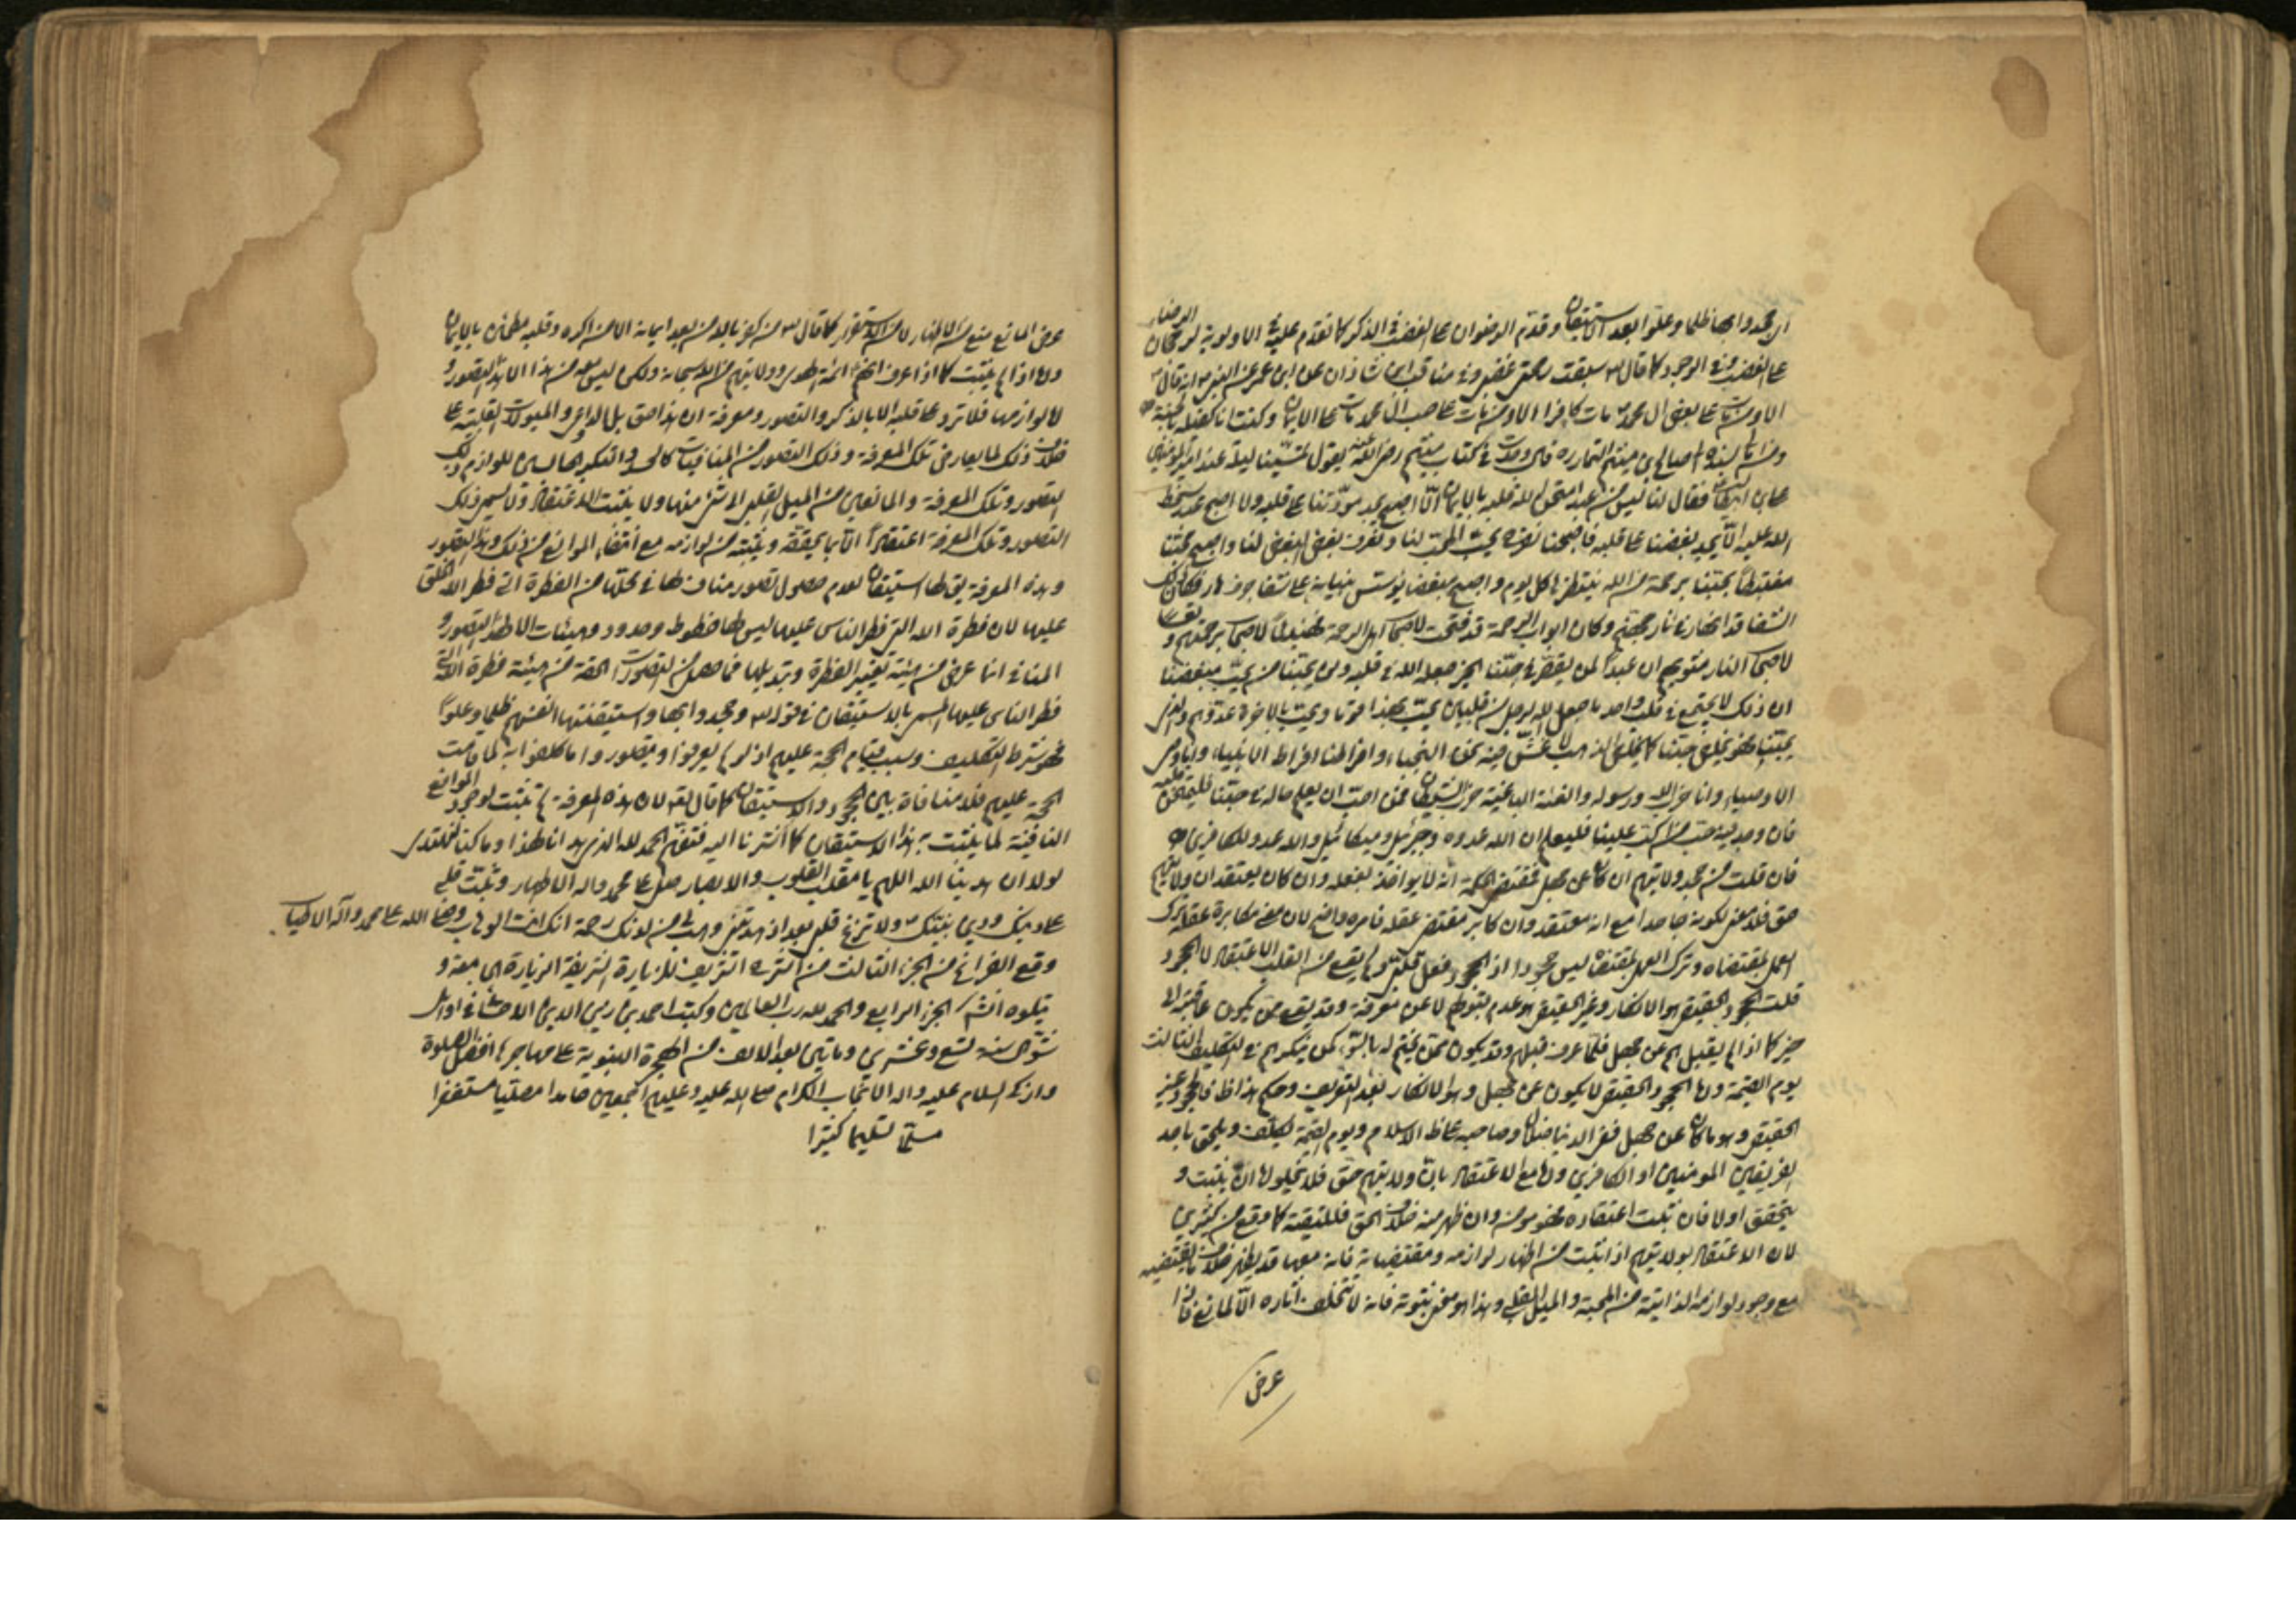 ان جحدوا بها ظلما وعلوا بعد الاستيقان وقدم الرضوان على الغضب في الذكر كما تقدم عليه في الاولوية لرجحان الرضاء
على الغضب في الوجود كما قال سبقت رحمتي غضبي وفي مناقب ابن شاذان عن ابن عمر عن النبي ص انه قال
الا ومن مات على بغض ال محمد مات كافرا الا ومن مات على حب ال محمد مات على الايمان وكنت انا كفيله بالجنة
صالح بن ميثم التمار ره قال وجدت في كتاب ميثم رضي الله عنه يقول تمسينا ليلة عند امير المؤمنين
على بن ابيطالب فقال لنا ليس من عبد امتحن الله قلبه بالايمان الا اصبح يجد مودتنا على قلبه ولا اصبح عبد سخط
الله عليه الا يجد بغضنا على قلبه فاصبحنا نفرح بحب المحب لنا ونعرف بغض المبغض لنا واصبح محبنا
مغتبطا بحبنا برحمة من الله ينتظرها كل يوم واصبح مبغضنا يؤسس بنيانه على شفا جرف هار فكان ذلك
الشفا قد انهار به في نار جهنم وكان ابواب الرحمة قد فتحت لاصحاب اهل الرحمة فهنيئا لاصحاب الرحمة رحمتهم و
لاصحاب النار مثويهم ان عبدا لن يقصر في حبنا لخير جعله الله في قلبه ولن يحبنا من يحب مبغضنا
ان ذلك لا يجتمع في قلب واحد ما جعل الله لرجل من قلبين يحب بهذا قوما ويحب بالاخر عدوهم والذي
يحبنا فهو يخلص حبنا كما يخلص الذهب لا غش فيه نحن النجباء وافراطنا افراط الانبياء وانا وصي
الاوصياء وانا حزب الله ورسوله والفئة الباغية حزب الشيطان فمن احب ان يعلم حاله في حبنا فليمتحن قلبه
فان وجد فيه حب من الب علينا فليعلم ان الله عدوه وجبرئيل وميكائيل والله عدو للكافرين
فان قلت من جحد ولايتهم ان كان عن جهل فمقتضى الحكمة انه لا يؤاخذ بفعله وان كان يعتقد ان ولايتهم
حق فلا معنى لكونه جاحدا مع انه معتقد وان كابر مقتضى عقله فامره واضح لان معنى مكابرة عقله ترك
العمل بمقتضاه وترك العمل بمقتضاه ليس جحودا اذ الجحود فعل قلبي ولم يقع من القلب الا الاعتقاد لا الجحود
قلت الجحود الحقيقي هو الانكار وغير الحقيقي هو عدم قبولهم لا عن معرفة وقد يقع ممن يكون عاقبته الى
خير كما اذا لم يقبل بهم عن جهل فلما عرف قبلهم وقد يكون ممن يختم له بالسوء كمن ينكرهم في التكليف الثالث
يوم القيمة واما الجحود الحقيقي لا يكون عن جهل وهو الانكار بعد التعريف وحكم هذا ظاهر فالجحود غير
الحقيقي وهو ما كان عن جهل ففي الدنيا ضلال وصاحبه على ظاهر الاسلام ويوم القيمة يكلف ويلحق باحد
الفريقين المؤمنين او الكافرين واما مع الاعتقاد بان ولايتهم حق فلا يخلو اما ان يثبت و
يتحقق اولا فان ثبت اعتقاده فهو مؤمن وان ظهر منه خلاف الحق فللتقية كما وقع من كثيرين
لان الاعتقاد بولايتهم اذا ثبت من اظهار لوازمه ومقتضياته فانه معها قد يظهر خلاف ما يقتضيه
مع وجود لوازمه الذاتية من المحبة والميل القلبي وهذا هو معنى ثبوته فانه لا تتخلف اثاره الا لمانع فاذا
عرض
عرض المانع منع من الاظهار لا من الاستقرار كما قال من كفر بالله من بعد ايمانه الا من اكره وقلبه مطمئن بالايمان
واما اذا لم يثبت كما اذا عرف انهم ائمة الهدى وولايتهم من الله سبحانه ولكن ليس معه من هذا الا هذا التصور و
لا لوازمها فلا ترد على قلبه الا بالذكر والتصور ومعرفة ان هذا حق بل الدواعي والميولات القلبية على
خلاف ذلك لما يعارض تلك المعرفة وذلك التصور من المنافيات كالحسد والتكبر المانعين للوازم ذلك
التصور وتلك المعرفة والمانعين من الميل القلبي الاثر منها ولا يثبت الاعتقاد ولا يسمى ذلك
التصور وتلك المعرفة اعتقادا الا بما يحققه ويثبته من لوازمه مع انتفاء الموانع من ذلك وهذا التصور
وهذه المعرفة يق لها استيقان لعدم حصول تصور مناف لها في محلها من الفطرة التي فطر الله الخلق
عليها لان فطرة الله التي فطر الناس عليها ليس لها خطوط وحدود وهيئات الا طبق التصور و
المنافي انما عرض من هيئة تغيير الفطرة وتبديلها فما حصل من التصورات الحقة من هيئة فطرة الله التي
فطر الناس عليها المسمى بالاستيقان في قوله وجحدوا بها واستيقنتها انفسهم ظلما وعلوا
فهو شرط التكليف وسبب قيام الحجة عليهم اذ لو لم يعرفوا ويتصوروا ما كلفوا به لما قامت
الحجة عليهم فلا منافاة بين الجحود والاستيقان كما قال تعالى لان هذه المعرفة لم تثبت لوجود الموانع
النافية لما يثبت به هذا الاستيقان كما اشرنا اليه فتفهم الحمد لله الذي هدانا لهذا وما كنا لنهتدي
لولا ان هدينا الله اللهم يا مقلب القلوب والابصار صل على محمد واله الاطهار وثبت قلبي
على دينك ودين نبيك ولا تزغ قلبي بعد اذ هديتني وهب لي من لدنك رحمة انك انت الوهاب وصلى الله على محمد وآله الاطياب
وقع الفراغ من الجزء الثالث من الشرح الشريف للزيارة الشريفة الزيارة الجامعة و
يتلوه انش الجزء الرابع والحمد لله رب العالمين وكتب احمد بن زين الدين الاحسائي في اوائل
شوال سنة تسع وعشرين وماتين بعد الالف من الهجرة النبوية على مهاجرها افضل الصلوة
وازكى السلام عليه واله الانجاب الكرام صلى الله عليه وعليهم اجمعين حامدا مصليا مستغفرا
مسلما تسليما كثيرا